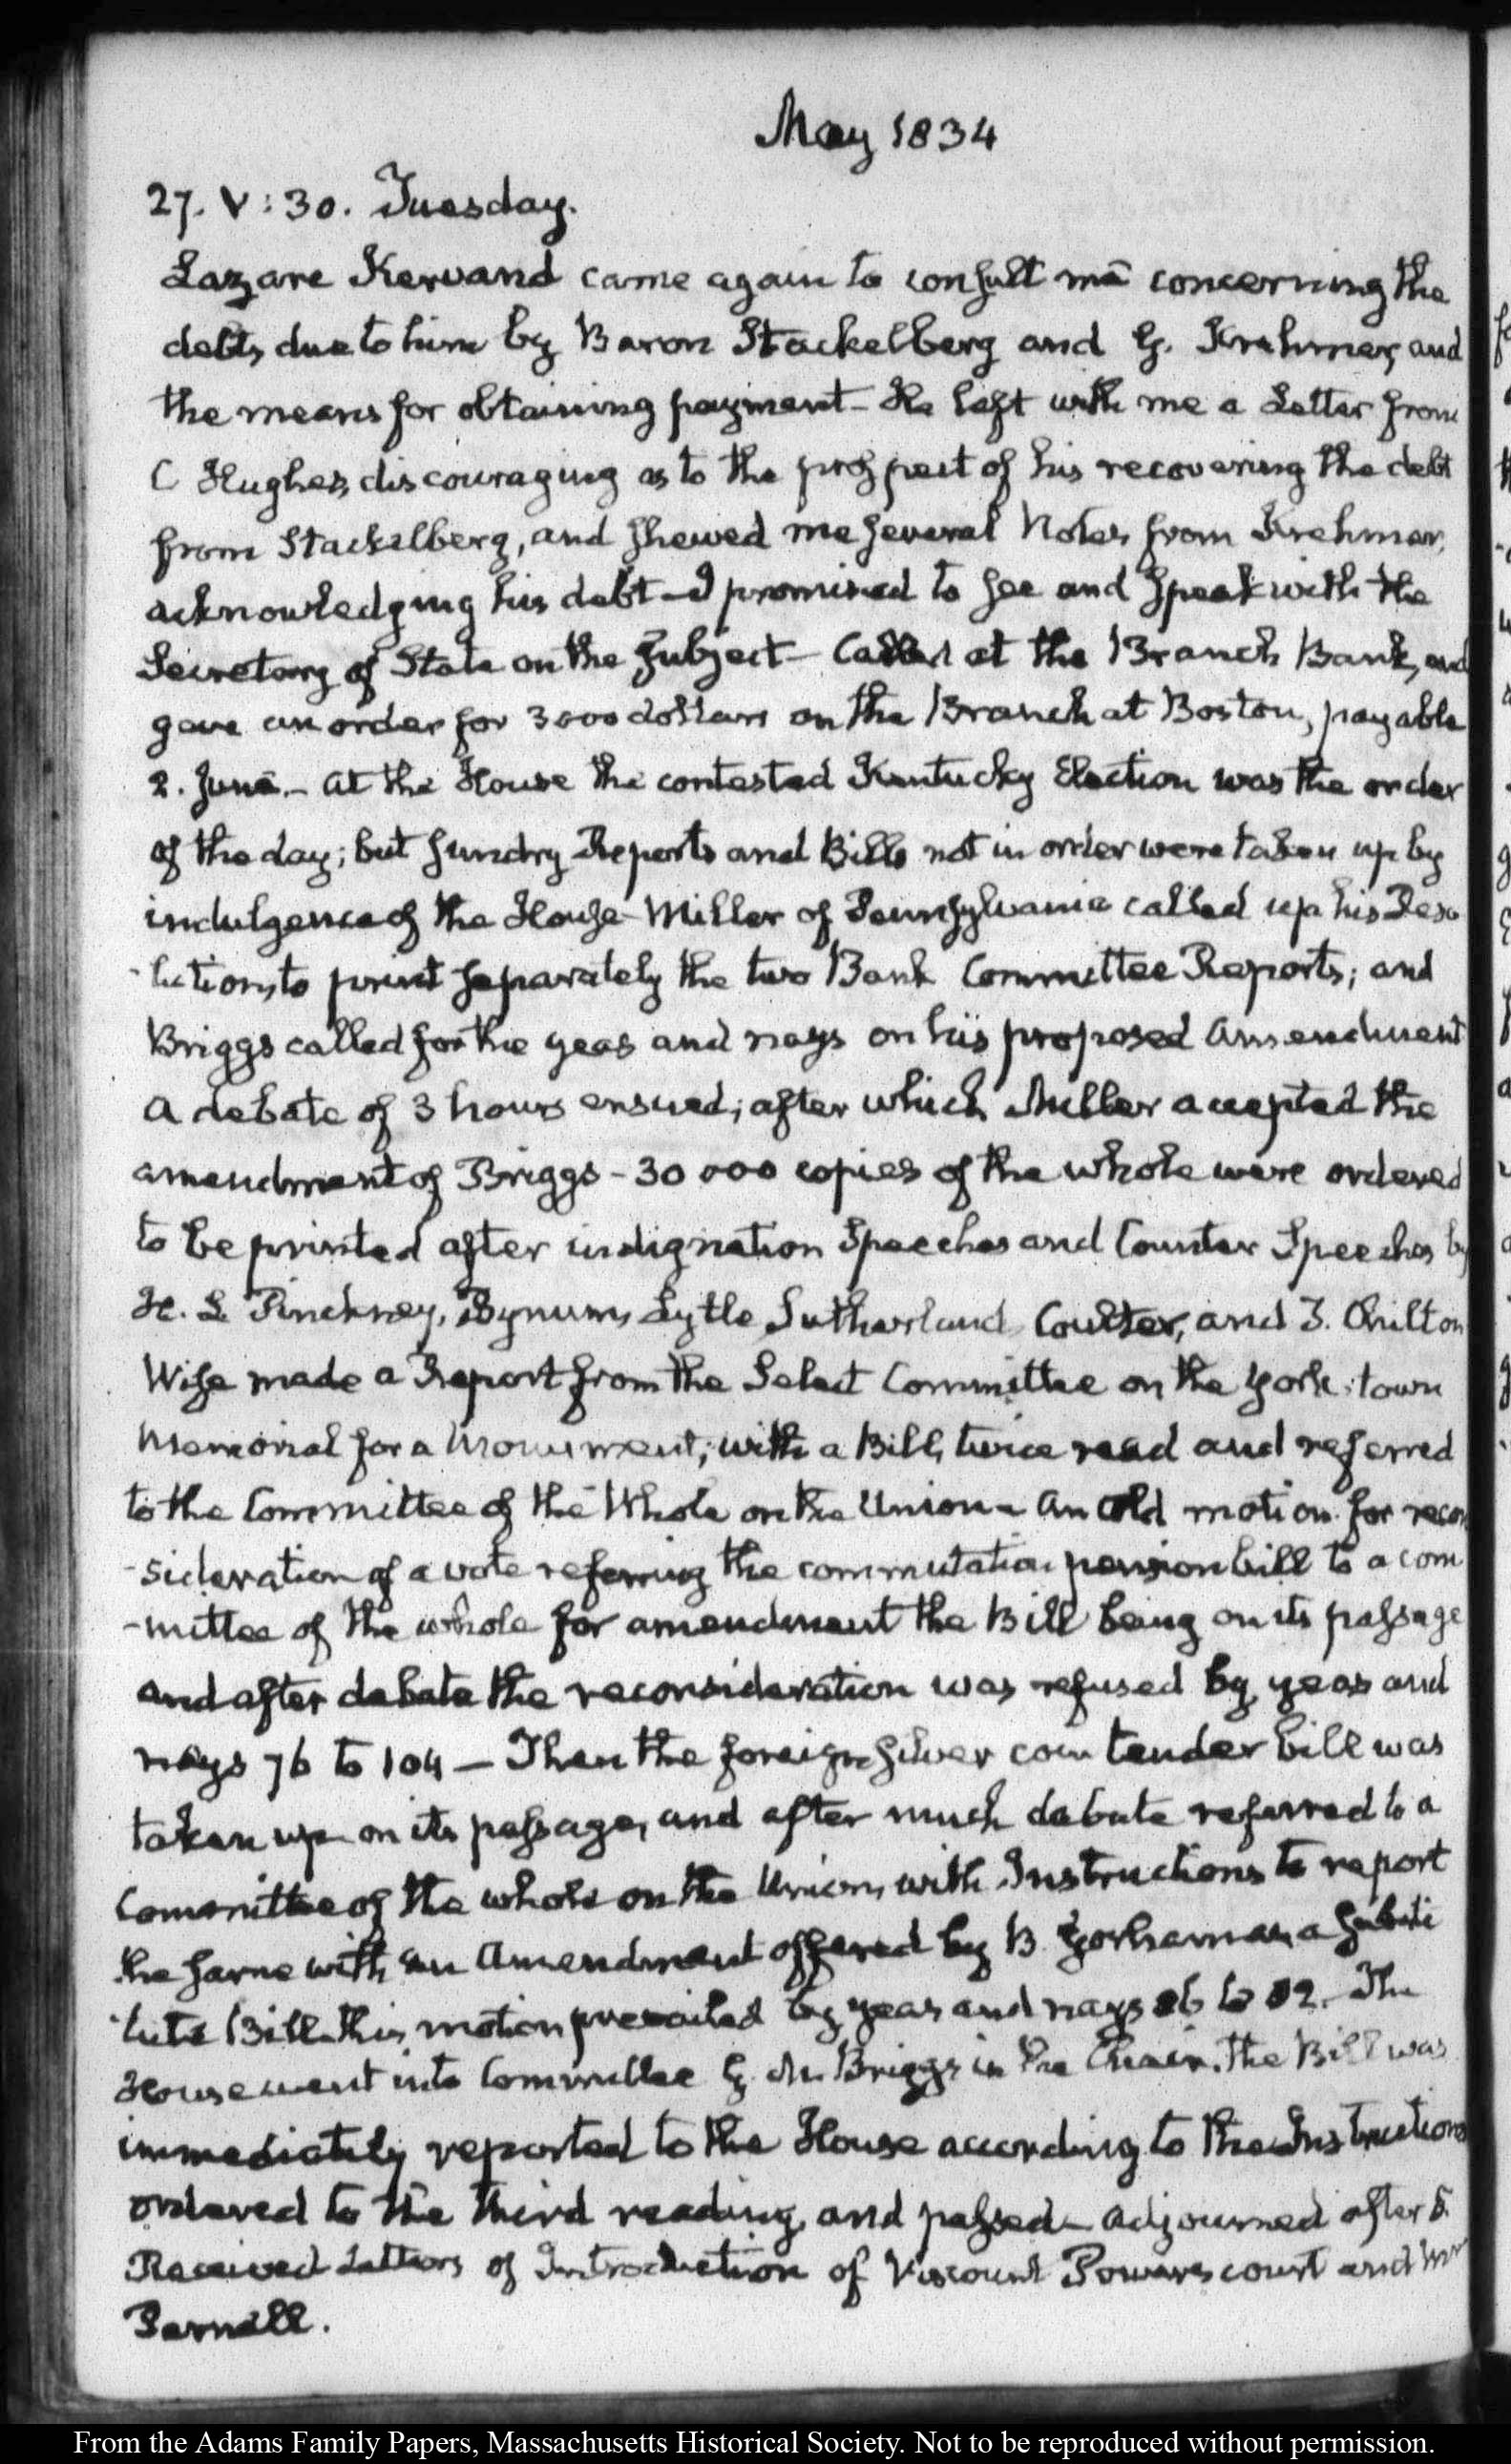 May 1834
27. V:30. Tuesday.
Lazare Kervand came again to consult me concerning the
debts, due to him by Baron Stackelberg and G. Krehmer, and
the means for obtaining payment— He left with me a Letter from
C Hughes, discouraging as to the prospect of his recovering the debt
from Stackelberg, and shewed me several Notes from Krehmer,
acknowledging his debt—I promised to see and speak with the
Secretary of State on the subject— Called at the Branch Bank, and
gave an order for 3000 dollars on the Branch at Boston, payable
2. June.— At the House the contested Kentucky Election was the order
of the day; but sundry Reports and Bills not in order were taken up by
indulgence of the House— Miller of Pennsylvania called up his Reso
-lution, to print separately the two Bank Committee Reports; and
Briggs called for the yeas and nays on his proposed Amendment
A debate of 3 hours ensued; after which Miller accepted the
amendment of Briggs— 30 000 copies of the whole were ordered
to be printed after indignation Speeches and Counter Speeches by
H. L Pinckney, Bynum, Lytle, Sutherland, Coulter, and T. Chilton
Wise made a Report from the Select Committee on the York-town
Memorial for a Monument; with a Bill, twice read and referred
to the Committee of the Whole on the Union— An old motion for recon
-sideration of a vote referring the commutation pension bill to a com
-mittee of the whole for amendment the Bill being on its passage
and after debate the reconsideration was refused by yeas and
nays 76 to 104 — Then the foreign silver coin tender bill was
taken up on its passage, and after much debate referred to a
Committee of the whole on the Union, with Instructions to report
the same with an Amendment offered by B. Gorham as a substi
-tute Bill. this motion prevailed by yeas and nays The
House went into Committee G. N. Briggs in the Chair. The Bill was
immediately reported to the House according to the Instructions
ordered to the third reading, and passed— Adjourned after 5.
Received Letters of Introduction of Viscount Powerscourt and Mr
Parnell.
From the Adams Family Papers, Massachusetts Historical Society. Not to be reproduced without permission.